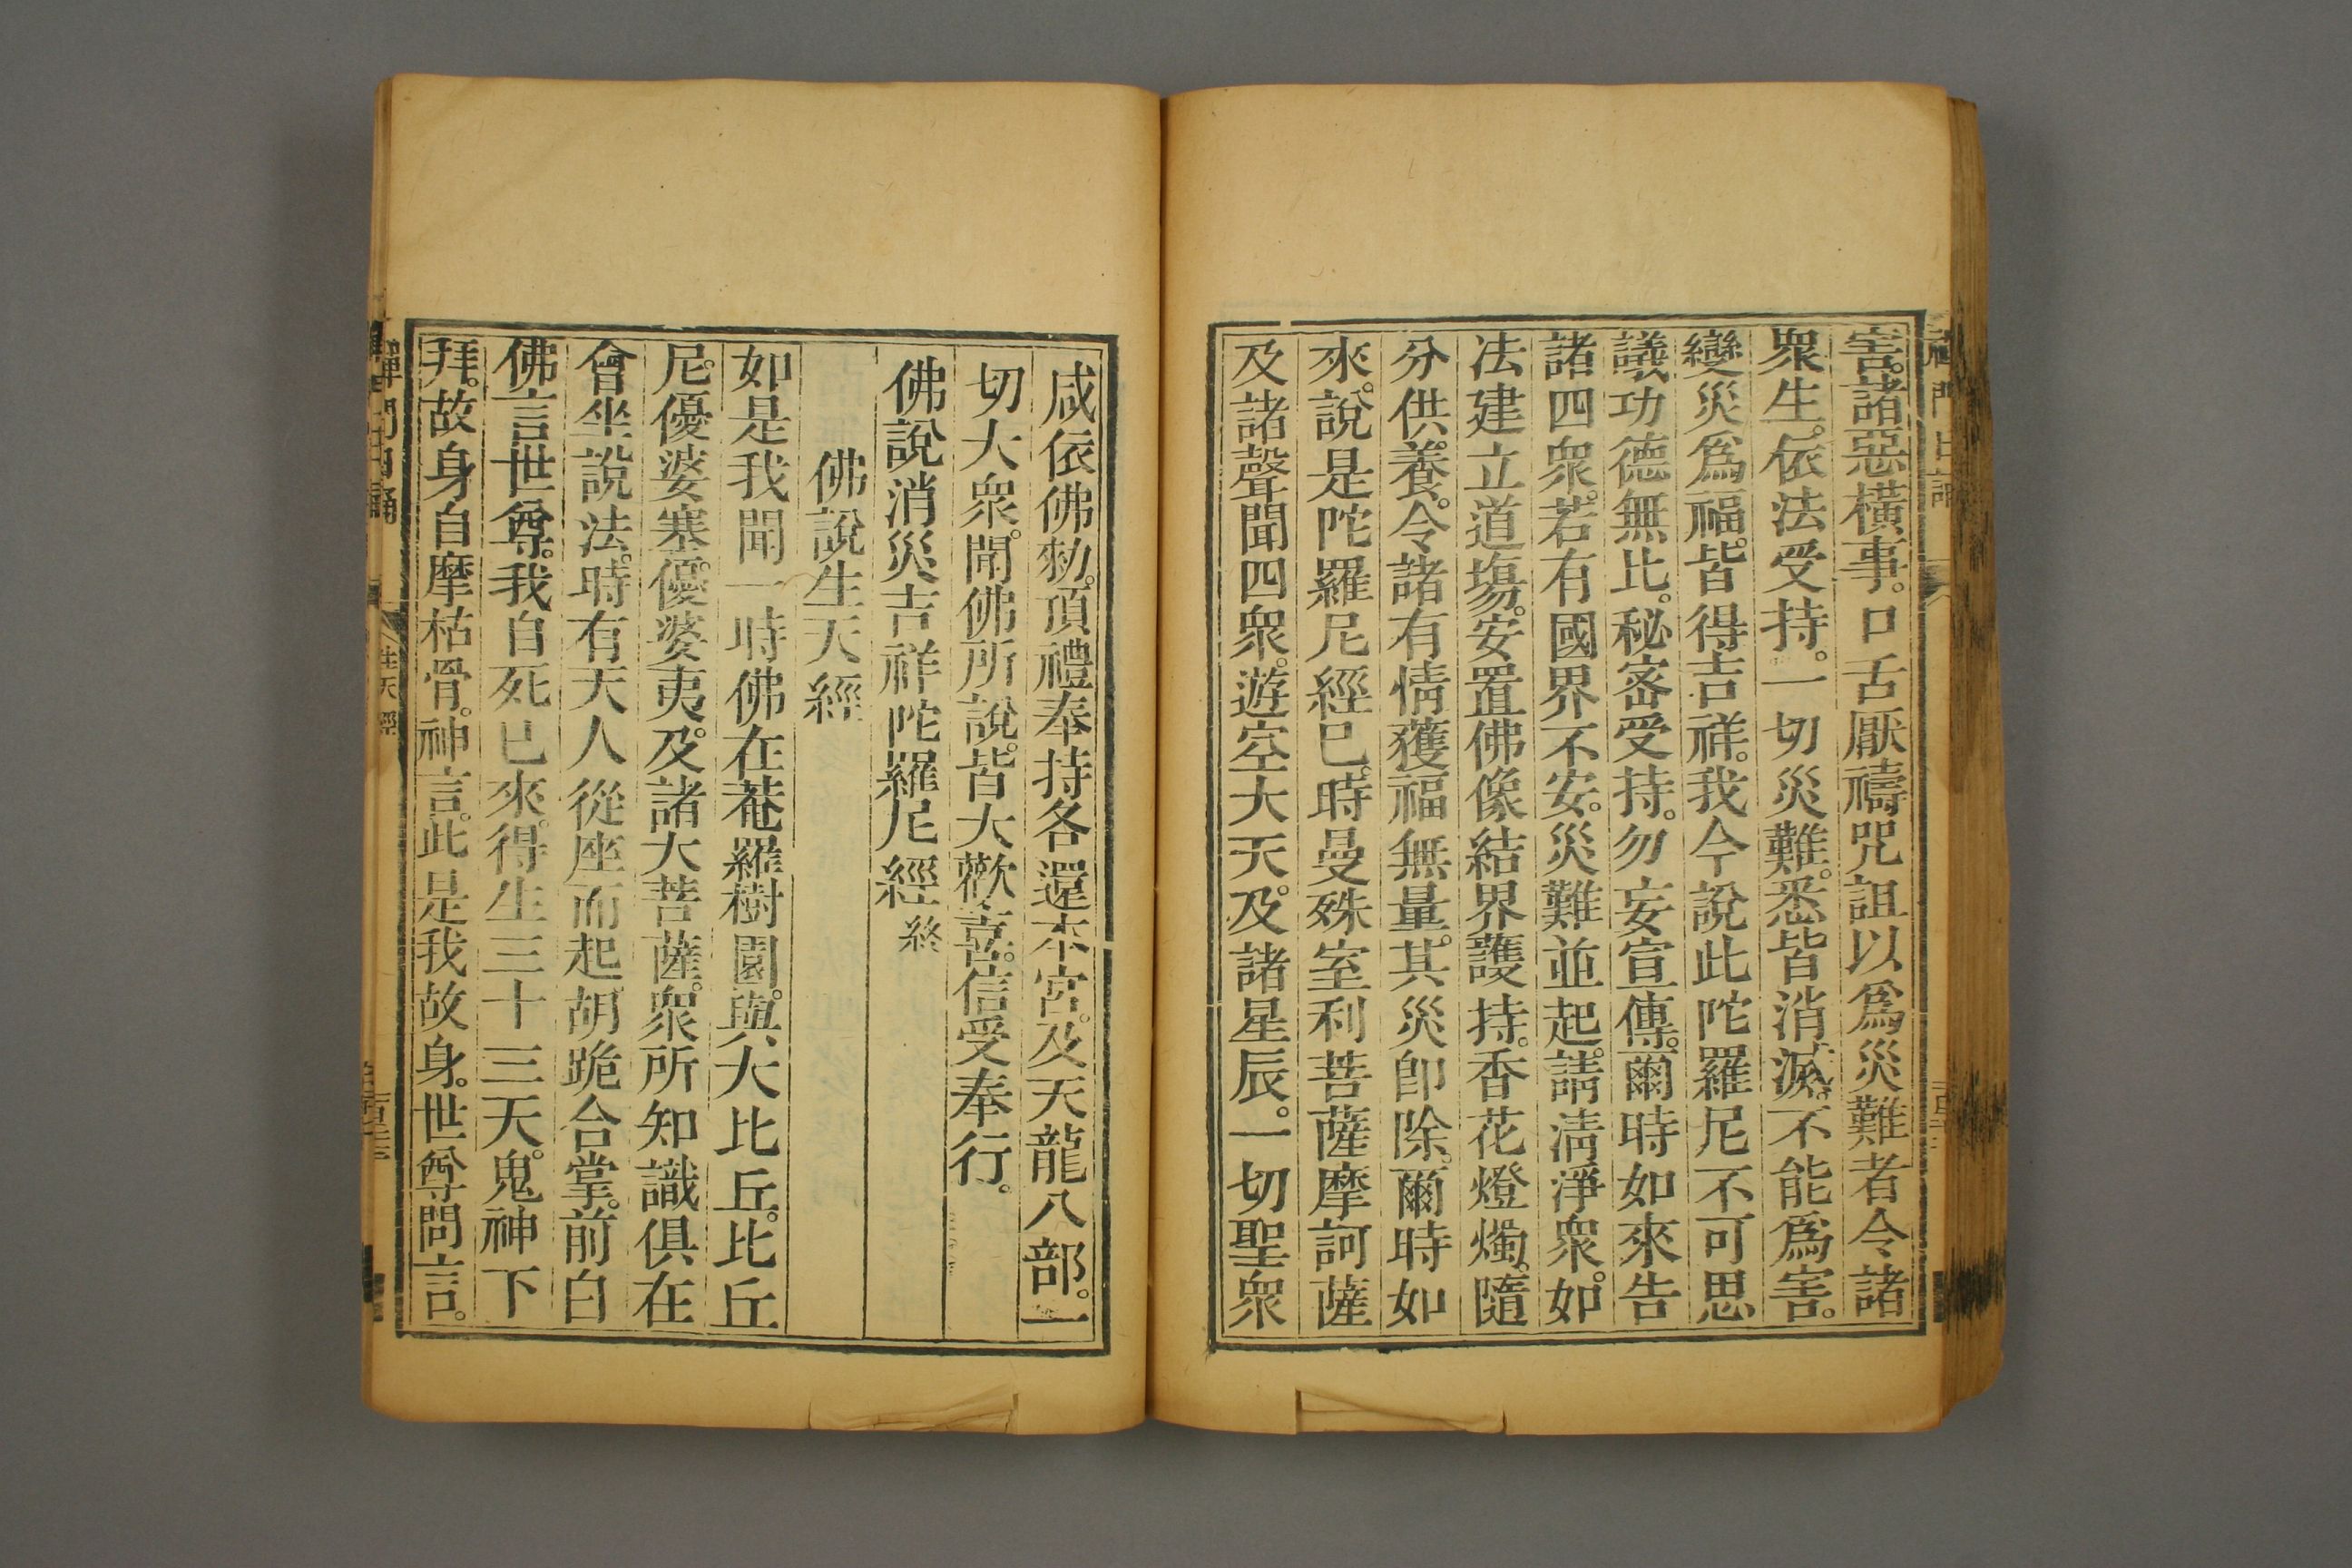 害。諸惡橫事。口舌厭禱咒詛以爲災難者令諸
衆生。依法受持。一切災難。悉皆消滅。不能爲害。
變災爲福。皆得吉祥。我今說此陀羅尼不可思
議功德無比。秘密受持。勿妄宣傳。爾時如來告
諸四衆。若有國界不安。災難並起。請淸淨衆。如
法建立道塲。安置佛像結界護持。香花燈燭。隨
分供養。令諸有情獲福無量。其災卽除。爾時如
來。說是陀羅尼經已。時曼殊室利菩薩摩訶薩
及諸聲聞四衆。遊空大天。及諸星辰。一切聖衆
咸依佛勑。頂禮奉持各還本宮。及天龍八部。一
切大衆。聞佛所說。皆大歡喜。信受奉行。
佛說消災吉祥陀羅尼經 終
佛說生天經
如是我聞一時佛在菴羅樹園。與大比丘。比丘
尼。優婆塞。優婆夷。及諸大菩薩。衆所知識俱在
會坐說法。時有天人從座而起胡跪合掌。前白
佛言世尊。我自死已來。得生三十三天。鬼神下
拜。故身自摩枯骨。神言。此是我故身。世尊問言。
禪門日誦
生天經